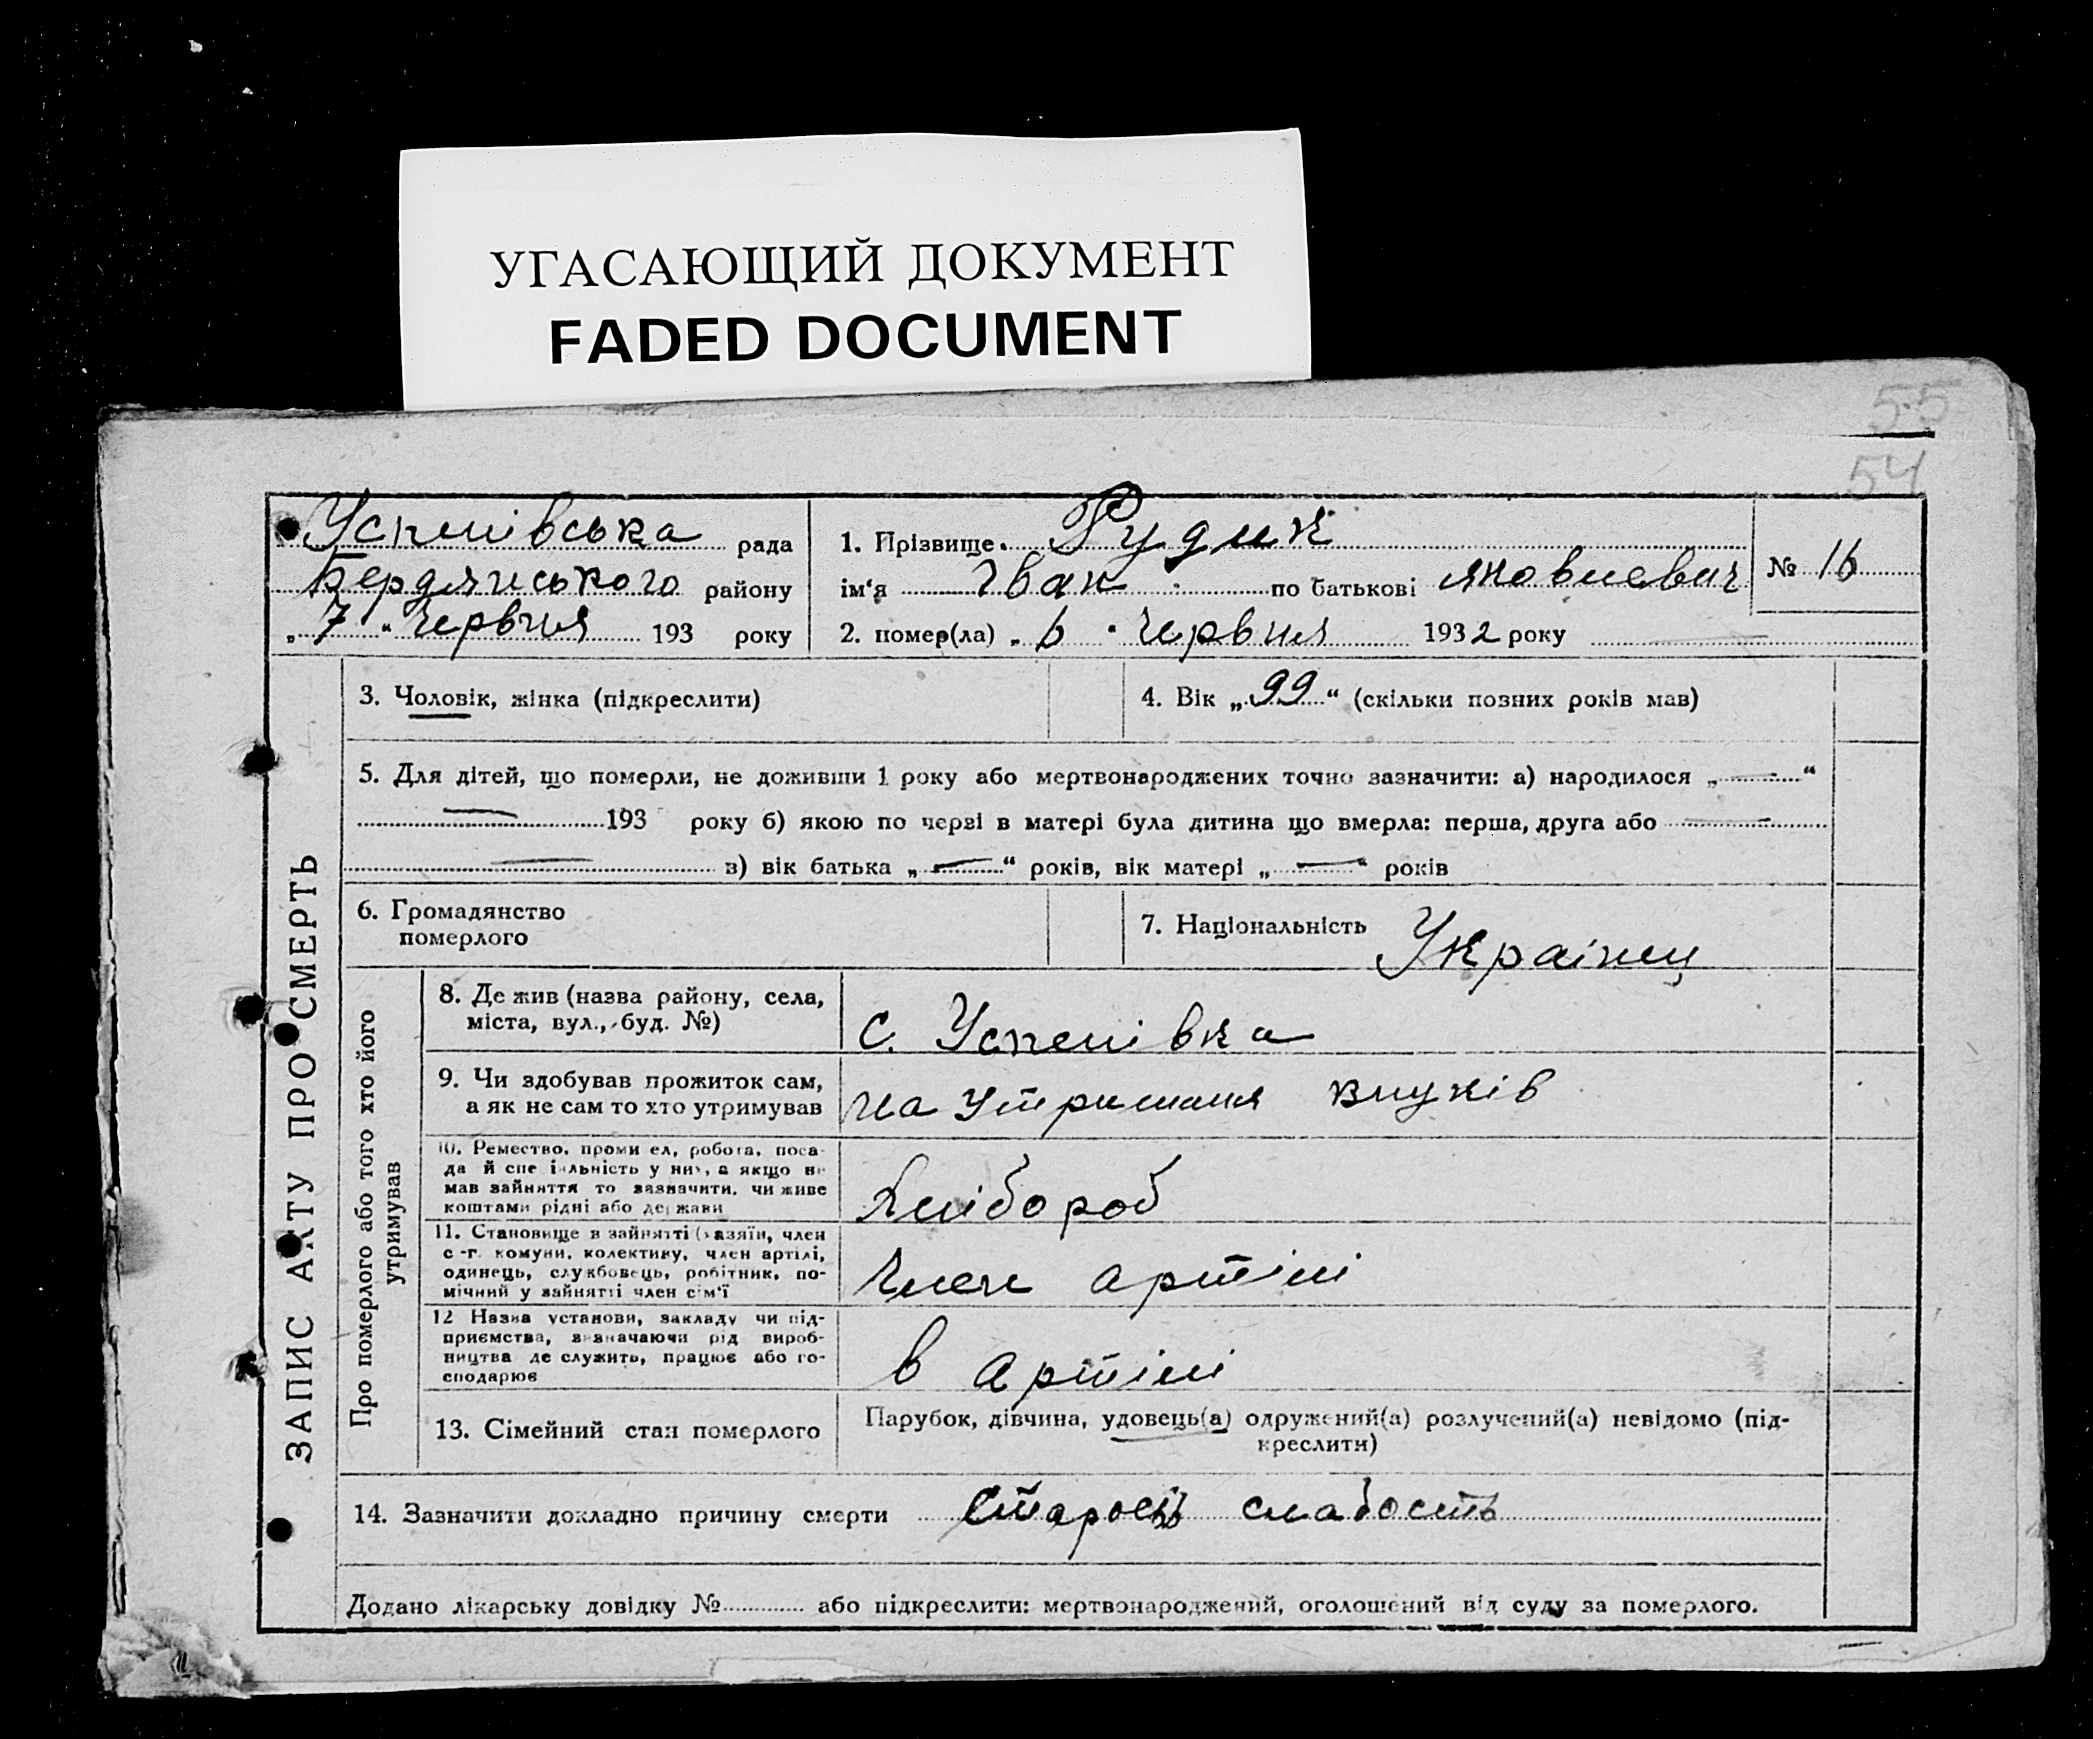 УГАСАЮЩИЙ ДОКУМЕНТ
FADED DOCUMENT
55
54
Успенівська рада
Бердянського району
„ 7 “ Червня 193 року
1. Прізвище Рудик
ім‘я Іван по батькові Яковлевич
№ 16
2. помер(ла) „ 6 “ Червня 1932 року
ЗАПИС АКТУ ПРО СМЕРТЬ
3. Чоловік, жінка (підкреслити)
4. Вік „ 99 “ (скільки позних років мав)
5. Для дітей, що померли, не доживши 1 року або мертвонароджених точно зазначити: а) народилося „ — “
— 193 року б) якою по черзі в матері була дитина що вмерла: перша, друга або —
— в) вік батька „ — “ років, вік матері „ — “ років
6. Громадянство
померлого
7. Національність Українец
Про померлого або того хто його
утримував
8. Де жив (назва району, села,
міста, вул., буд. №)
с. Успенівка
9. Чи здобував прожиток сам,
а як не сам то хто утримував
на утриманя внуків
10. Ремество, проми ел, робота, поса-
да й спе іяльність у них, а якщо не
мав зайняття то зазначити, чи живе
коштами рідні або держави
Хлібороб
11. Становище в зайнятті (хазяїн, член
с.-г. комуни, колективу, член артілі,
одинець, службовець, робітник, по-
мічний у зайнятті член сім‘ї
Член артілі
12 Назва установи, закладу чи під-
приємства, зазначаючи рід вироб-
ництва де служить, працює або го-
сподарює
в артілі
13. Сімейний стан померлого
Парубок, дівчина, удовець(а) одружений(а) розлучений(а) невідомо (під-
креслити)
14. Зазначити докладно причину смерти Старость слабость
Додано лікарську довідку № або підкреслити: мертвонароджений, оголошений від суду за померлого.